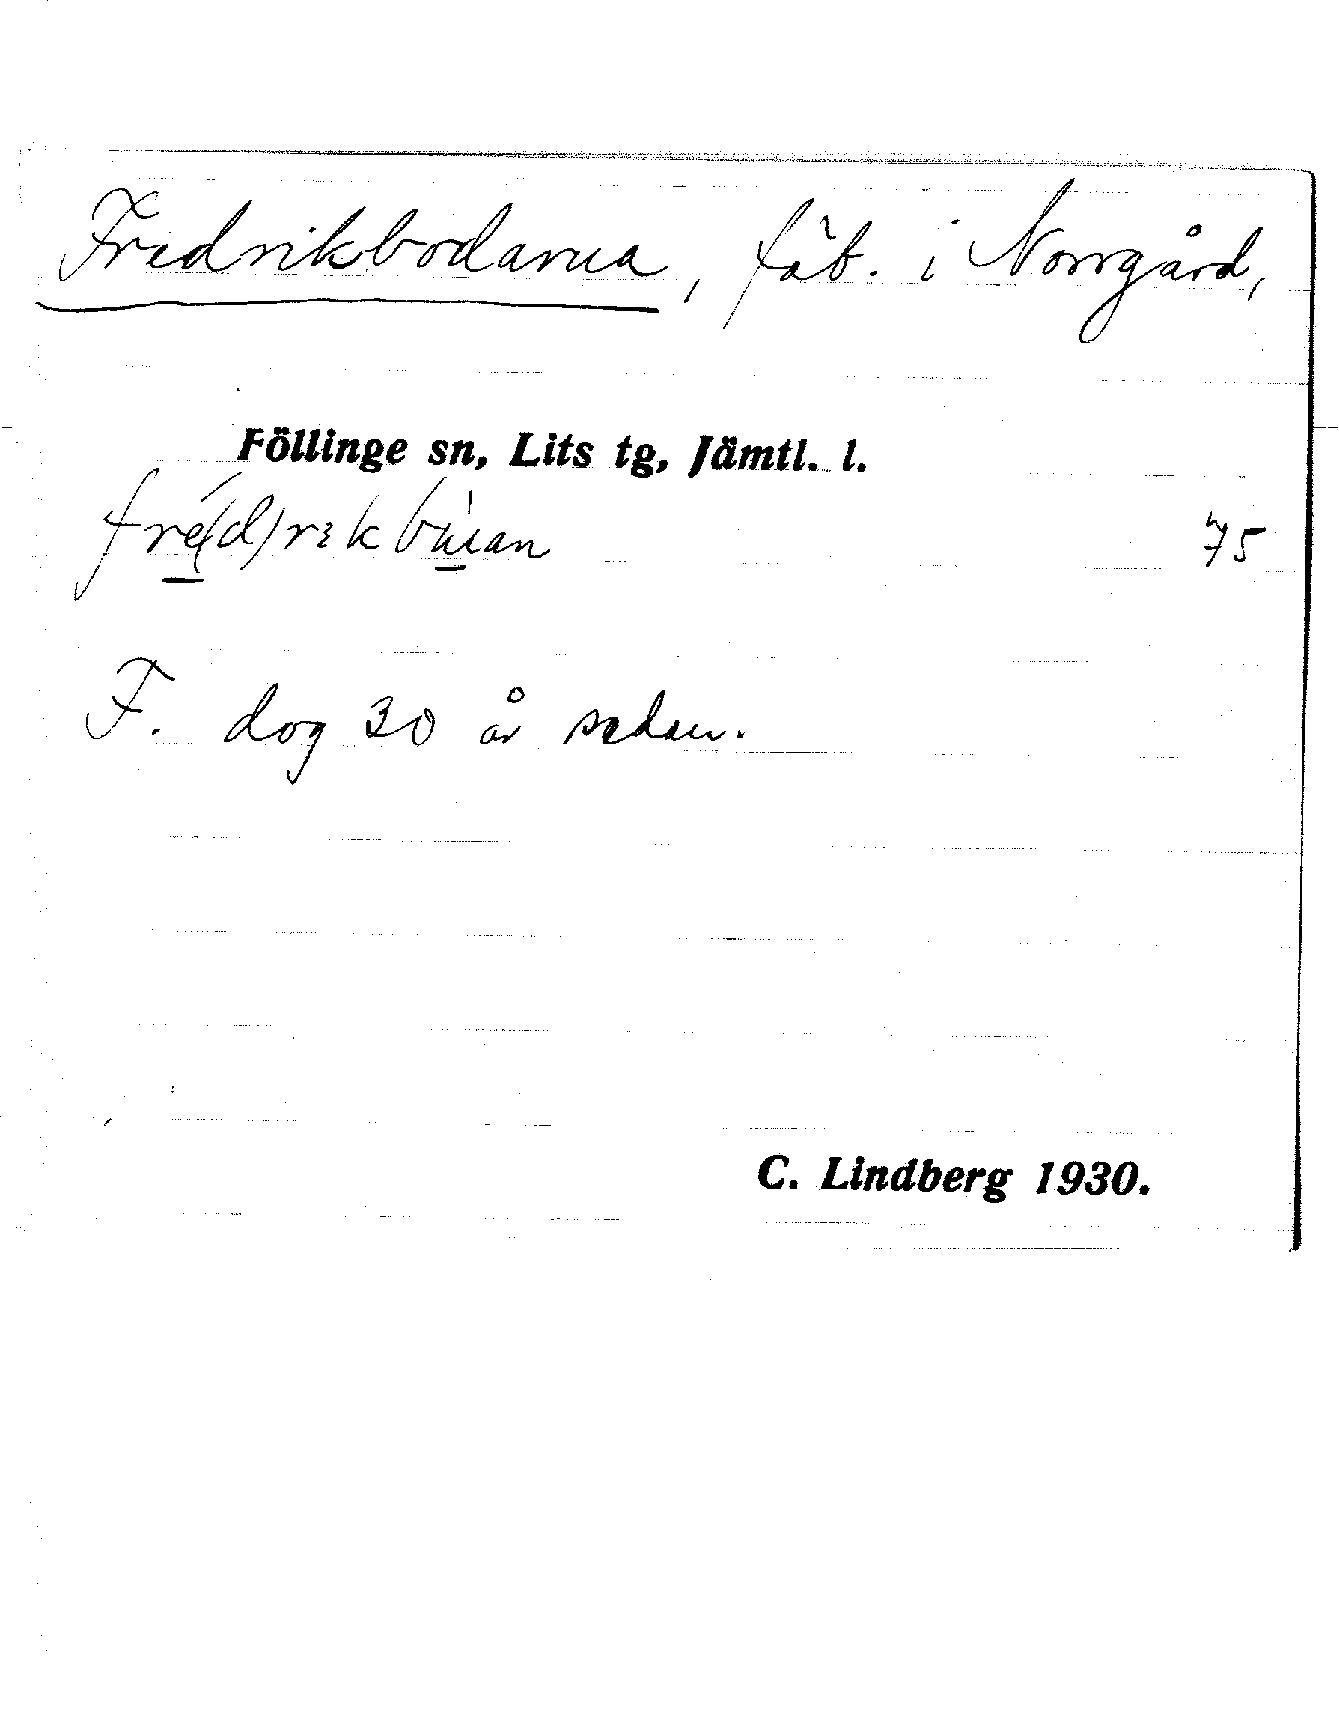 Fredrikbodarna, fäb. i Norrgård,
Föllinge sn, Lits tg, Jämtl. l.
75
F. dog 30 år sedan.
C. Lindberg 1930.